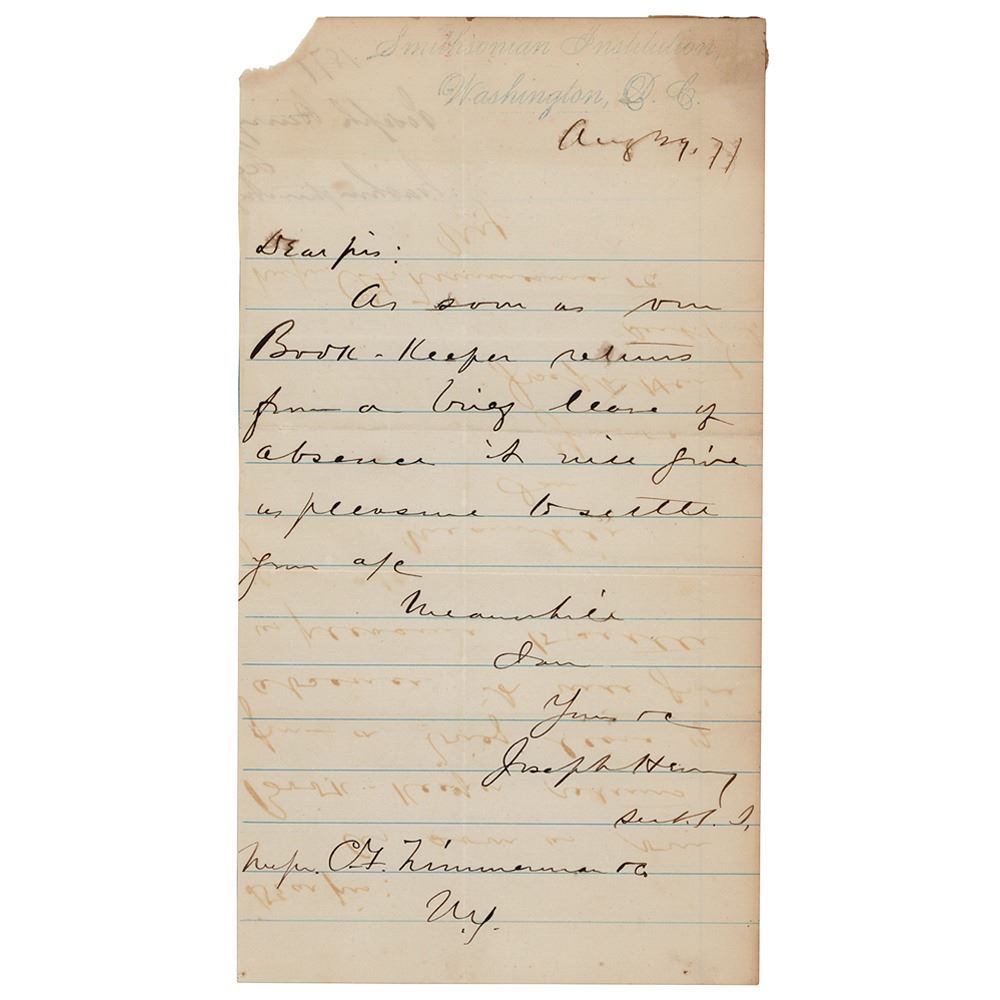 Smithsonian Institution,
Washington, D. C.
Aug 29, 77
Dear sir:
As soon as our
Book-Keeper returns
from a brief leave of
absence it will give
us pleasure to settle
your a/c
Meanwhile
I am
Yours &c
Joseph Henry
Sect. S. I.
Messrs. C. F. Zimmerman & Co
N.Y.